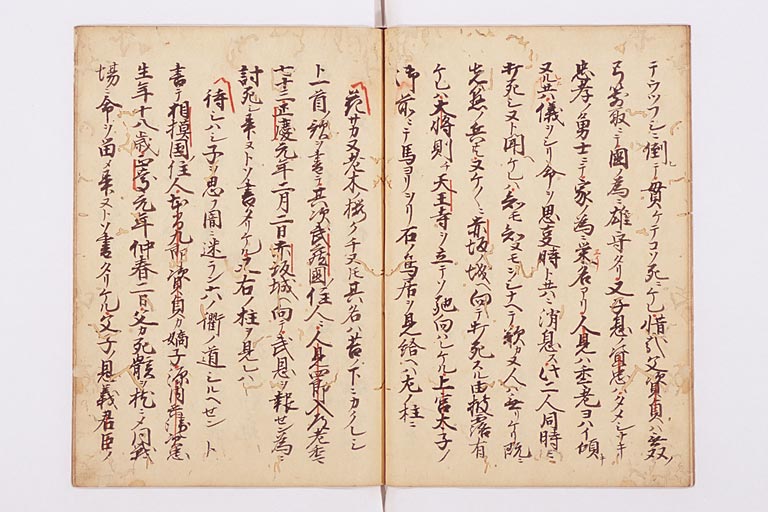 テウツフシニ倒テ貫ケテコソ死ニケレ惜哉父資貞ハ無双ノ
弓箭取ニテ國ノ為ニ雄守タリ又子息ノ資忠ハタメシナキ
忠孝ノ勇士ニテ家ノ為ニ栄名アリ人見ハ年老ヨハイ傾
又レ共儀ヲシリ命ヲ思事時ト共ニ消息ス此二人同時ニ
打死シヌト聞ケレハ知モ知ヌモヲシナヘテ歎カヌ人ハ無リケリ既ニ
先懸ノ兵ヌケ〱ニ赤坂ノ城ヘ向テ打死スル由披露有
ケレハ大将則チ天王寺ヲ立テソ馳向ハレケル上宮太子ノ
御前ニテ馬ヨリヲリ石ノ鳥居ヲ見給ヘハ左ノ柱ニ
花サカヌ老木ノ桜クチヌトモ其名ハ苔ノ下ニカクレシ
ト一首ノ歌ヲ書テ其次ニ武蔵國住人人見四郎入道生年
七十三正慶元年二月二日赤坂城ヘ向テ武恩ヲ報セン為ニ
討死シ畢ヌトソ書タリケル又右ノ柱ヲ見レハ
待シハシ子ヲ思フ闇ニ迷ラン六ノ衢ノ道シルヘセン ト
書テ相模国住人本間九郎資貞カ嫡子源内兵衛資忠
生年十八歳正慶元年仲春二日父カ死骸ヲ枕ニメ同戦
場ニ命ヲ留メ畢ヌトソ書タリケル父子ノ恩義君臣ノ